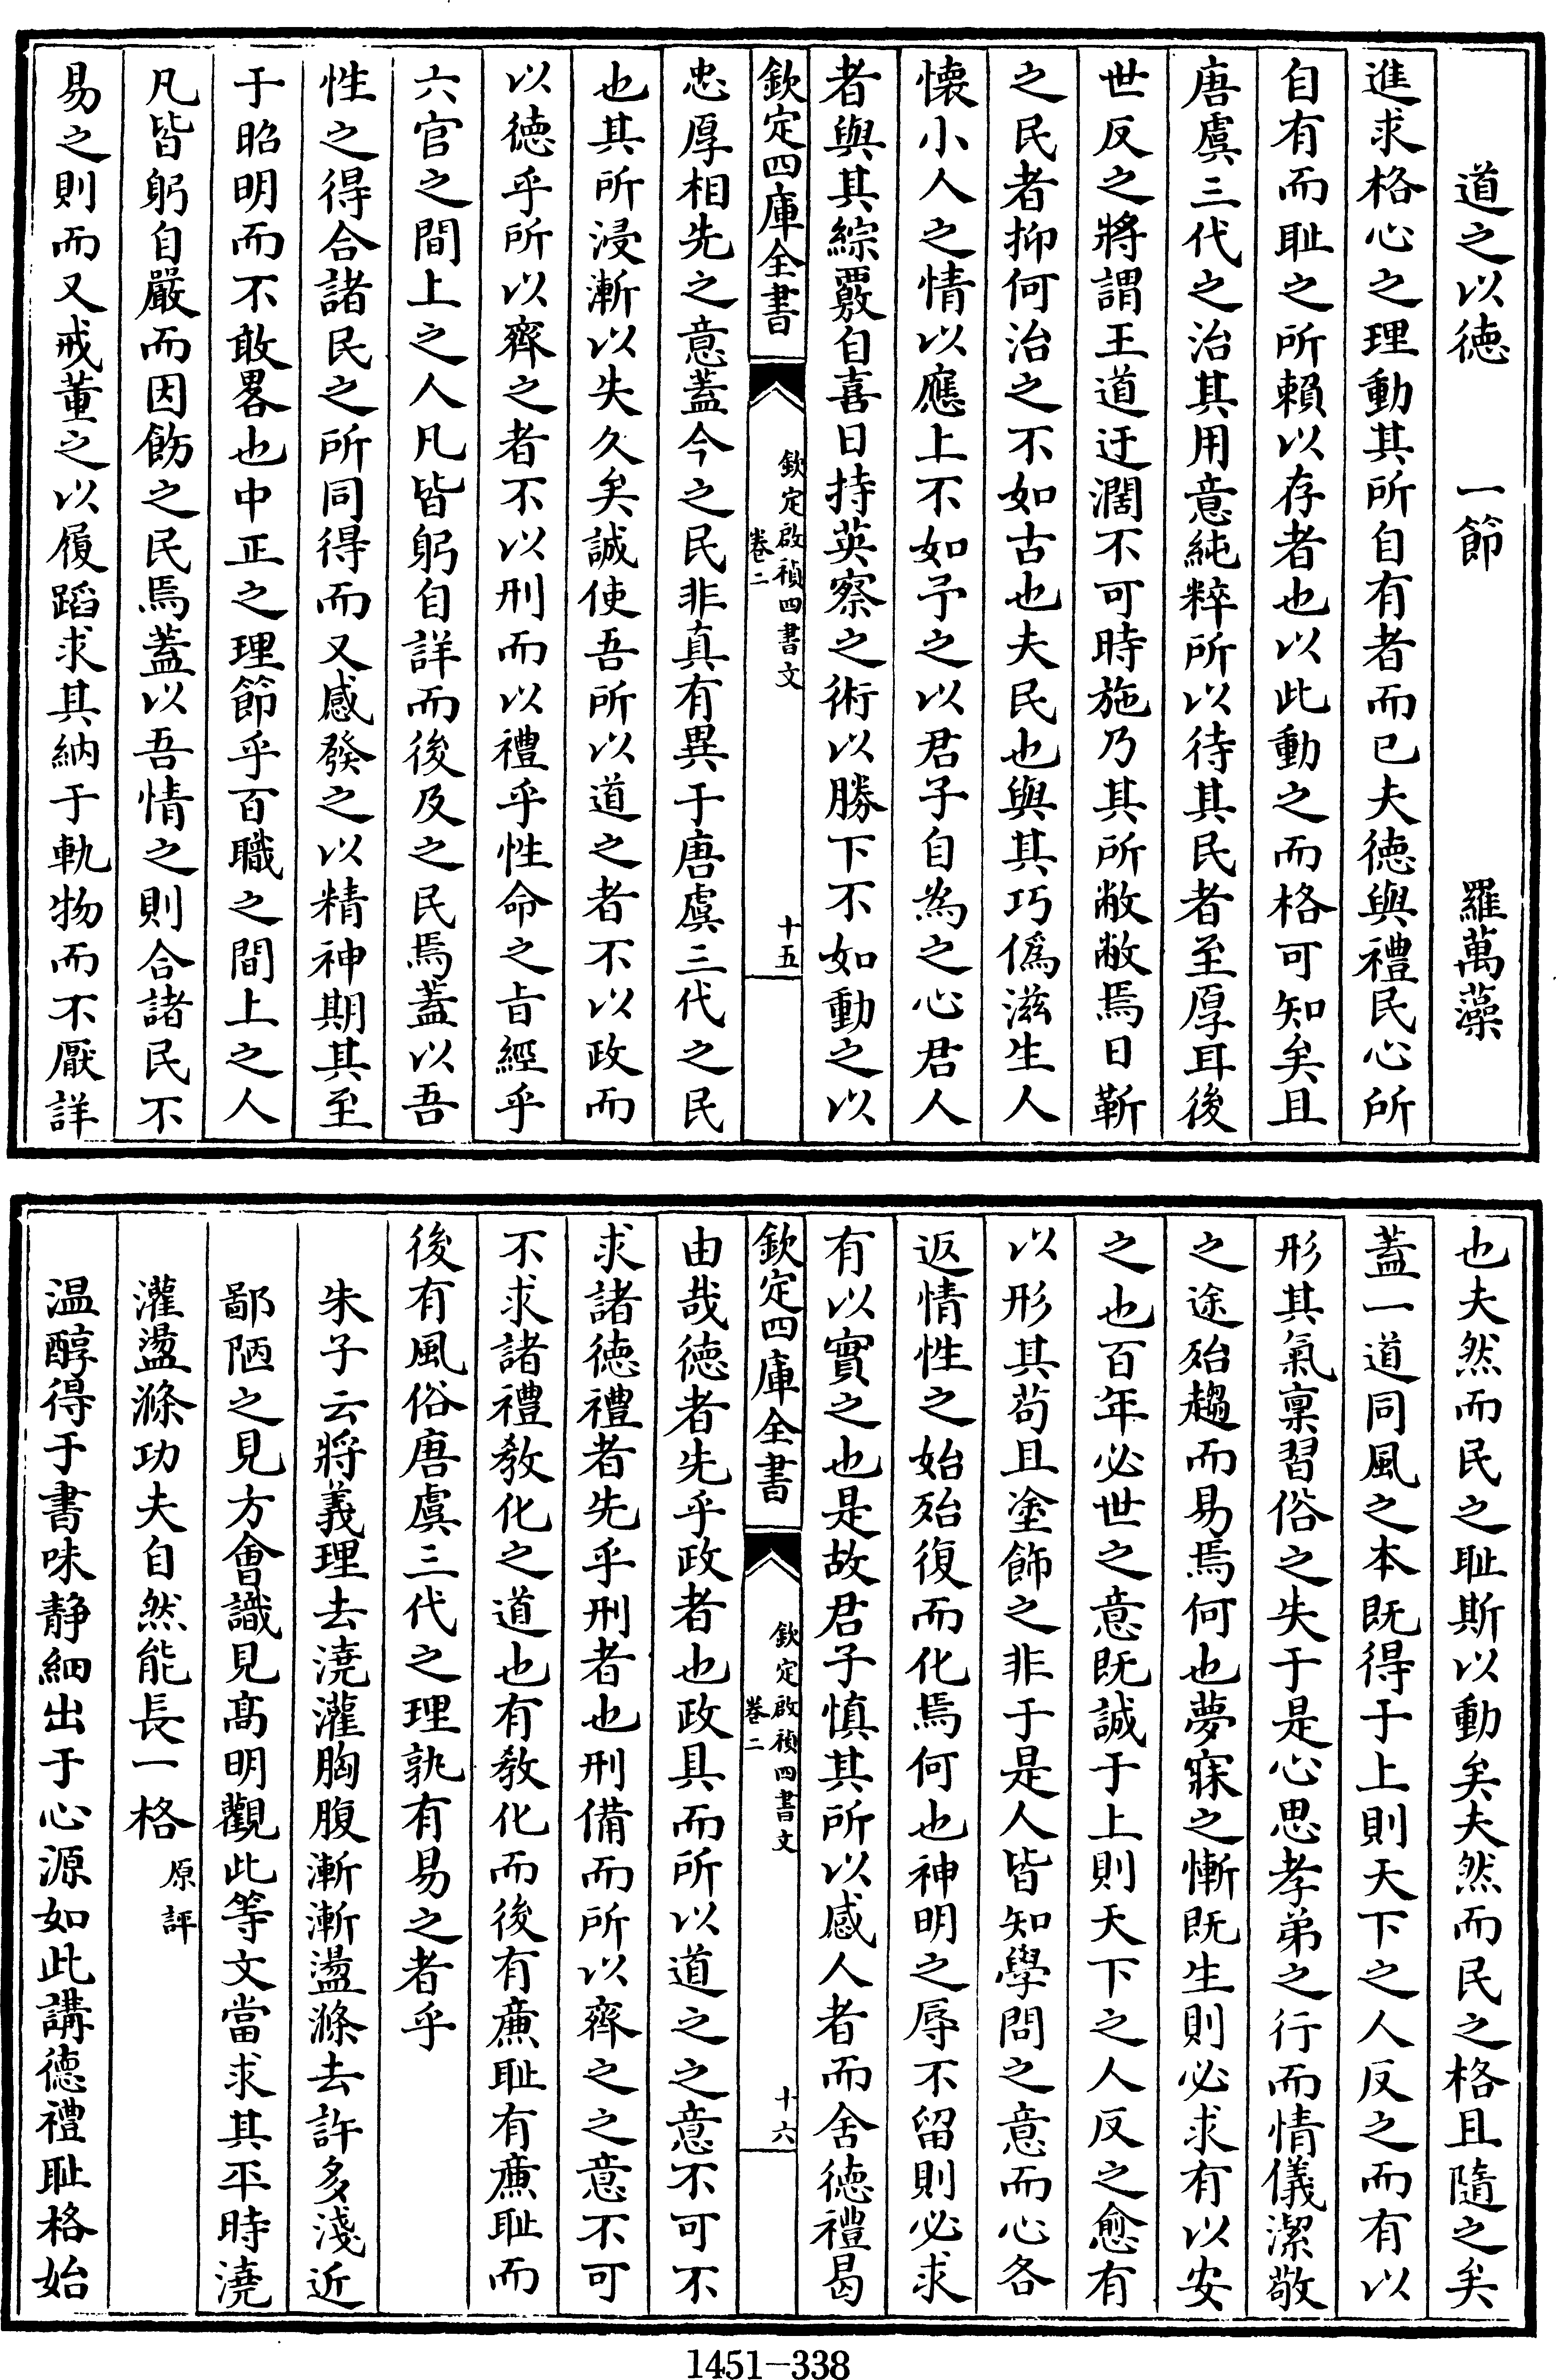 道之以徳　一節　羅萬藻
進求格心之理動其所自有者而已夫徳與禮民心所
自有而耻之所賴以存者也以此動之而格可知矣且
唐虞三代之治其用意純粹所以待其民者至厚耳後
世反之將謂王道迂濶不可時施乃其所敝敝焉日靳
之民者抑何治之不如古也夫民也與其巧偽滋生人
懐小人之情以應上不如予之以君子自為之心君人
者與其綜覈自喜日持英察之術以勝下不如動之以
欽定四庫全書　欽定啟禎四書文　卷二　十五
忠厚相先之意蓋今之民非真有異于唐虞三代之民
也其所浸漸以失久矣誠使吾所以道之者不以政而
以徳乎所以齊之者不以刑而以禮乎性命之㫖經乎
六官之間上之人凡皆躬自詳而後及之民焉蓋以吾
性之得合諸民之所同得而又感發之以精神期其至
于昭明而不敢畧也中正之理節乎百職之間上之人
凡皆躬自嚴而因飭之民焉蓋以吾情之則合諸民不
易之則而又戒董之以履蹈求其納于軌物而不厭詳
也夫然而民之耻斯以動矣夫然而民之格且隨之矣
蓋一道同風之本既得于上則天下之人反之而有以
形其氣稟習俗之失于是心思孝弟之行而情儀潔敬
之途殆趨而易焉何也夢寐之慚既生則必求有以安
之也百年必世之意既誠于上則天下之人反之愈有
以形其苟且塗飾之非于是人皆知學問之意而心各
返情性之始殆復而化焉何也神明之辱不留則必求
有以實之也是故君子慎其所以感人者而舍徳禮曷
欽定四庫全書　欽定啟禎四書文　卷二　十六
由哉徳者先乎政者也政具而所以道之之意不可不
求諸徳禮者先乎刑者也刑備而所以齊之之意不可
不求諸禮教化之道也有教化而後有㢘耻有㢘耻而
後有風俗唐虞三代之理孰有易之者乎
朱子云將義理去澆灌胸腹漸漸盪滌去許多淺近
鄙陋之見方會識見髙明觀此等文當求其平時澆
灌盪滌功夫自然能長一格原評
温醇得于書味静細出于心源如此講徳禮耻格始
1451—338